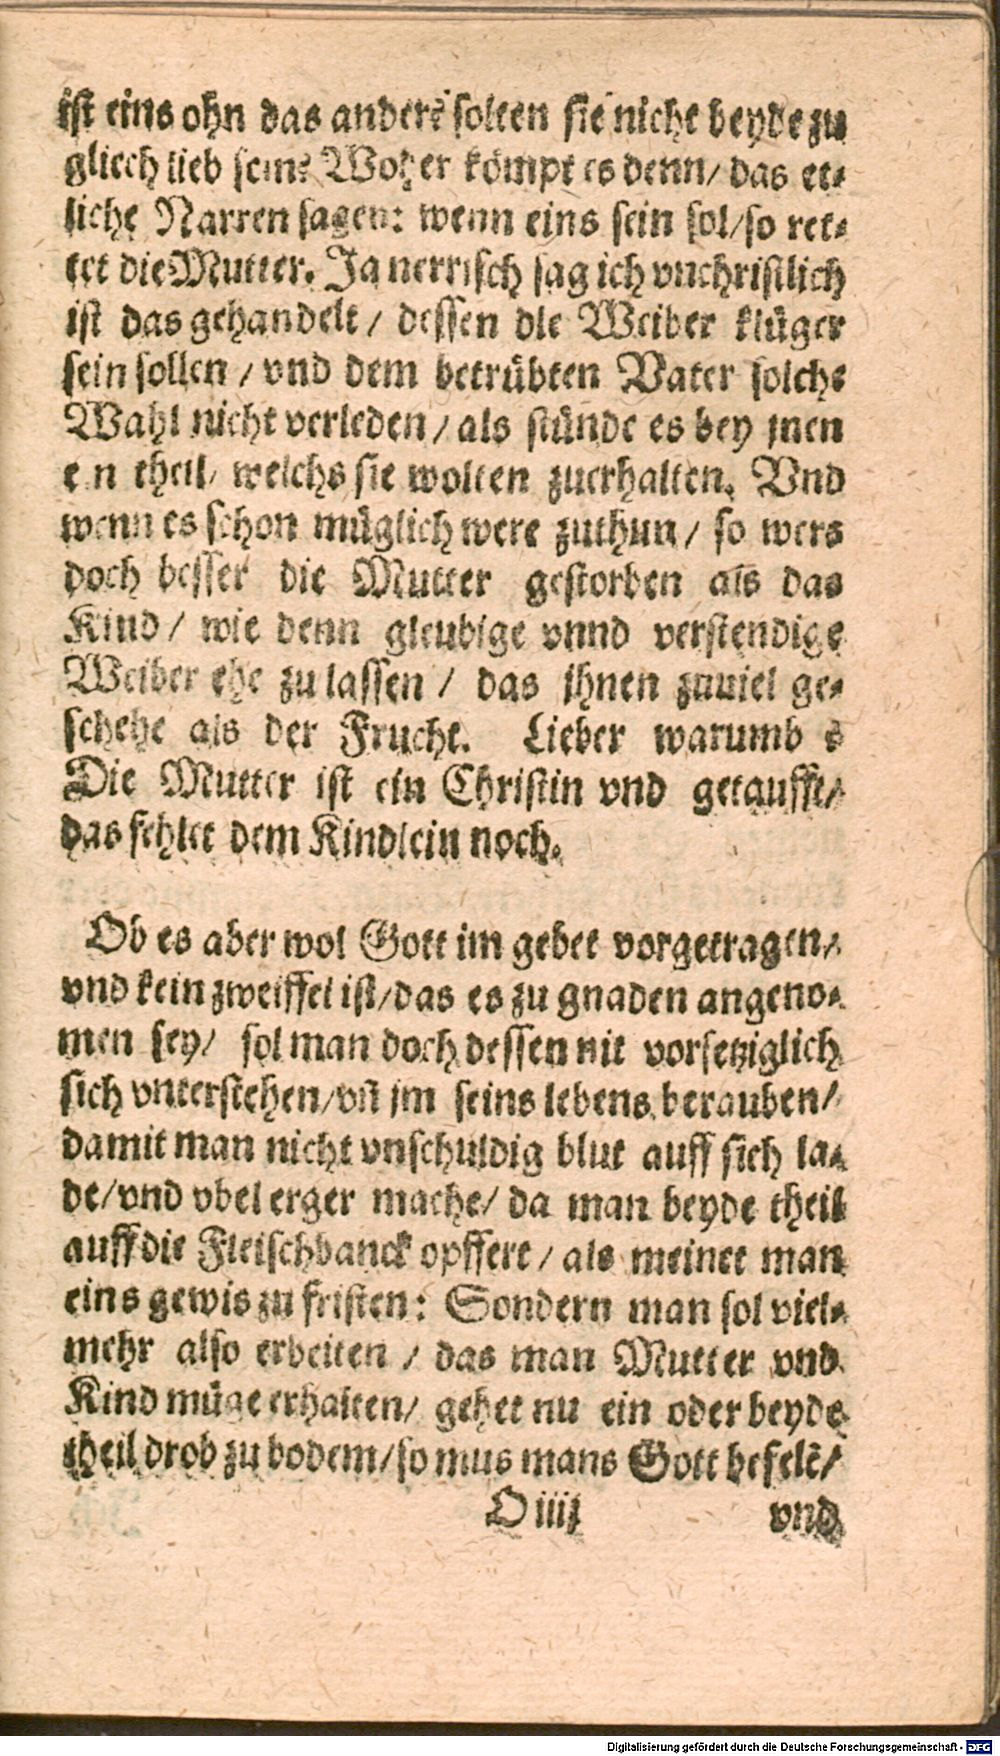 ist eins ohn das andere solten sie nicht beyde zu
gleich lieb sein? Woher kömpt es denn/ das et-
liche Narren sagen: wenn eins sein sol/so ret-
tet die Mutter. Ja nerrisch sag ich vnchristlich
ist das gehandelt / dessen die Weiber klüger
sein sollen / vnd dem betrübten Vater solche
Wahl nicht verleden / als stünde es bey jnen
ein theil/ welchs sie wolten zuerhalten. Vnd
wenn es schon müglich were zuthun / so wers
doch besser die Mutter gestorben als das
Kind / wie denn gleubige vnnd verstendige
Weiber ehe zu lassen / das ihnen zuuiel ge-
schehe als der Frucht. Lieber warumb?
Die Mutter ist ein Christin vnd getaufft/
das fehlet dem Kindlein noch.
Ob es aber wol Gott im gebet vorgetragen/
vnd kein zweiffel ist/das es zu gnaden angeno-
men sey/ sol man doch dessen nit vorsetziglich
sich vnterstehen/vñ jm seins lebens berauben/
damit man nicht vnschuldig blut auff sich la-
de/vnd vbel erger mache/ da man beyde theil
auff die Fleischbanck opffert / als meinet man
eins gewis zu fristen: Sondern man sol viel-
mehr also erbeiten / das man Mutter vnd
Kind müge erhalten/ gehet nu ein oder beyde
theil drob zu bodem/so mus mans Gott befelẽ/
O iiij vnd
Digitalisierung gefördert durch die Deutsche Forschungsgemeinschaft - DFG